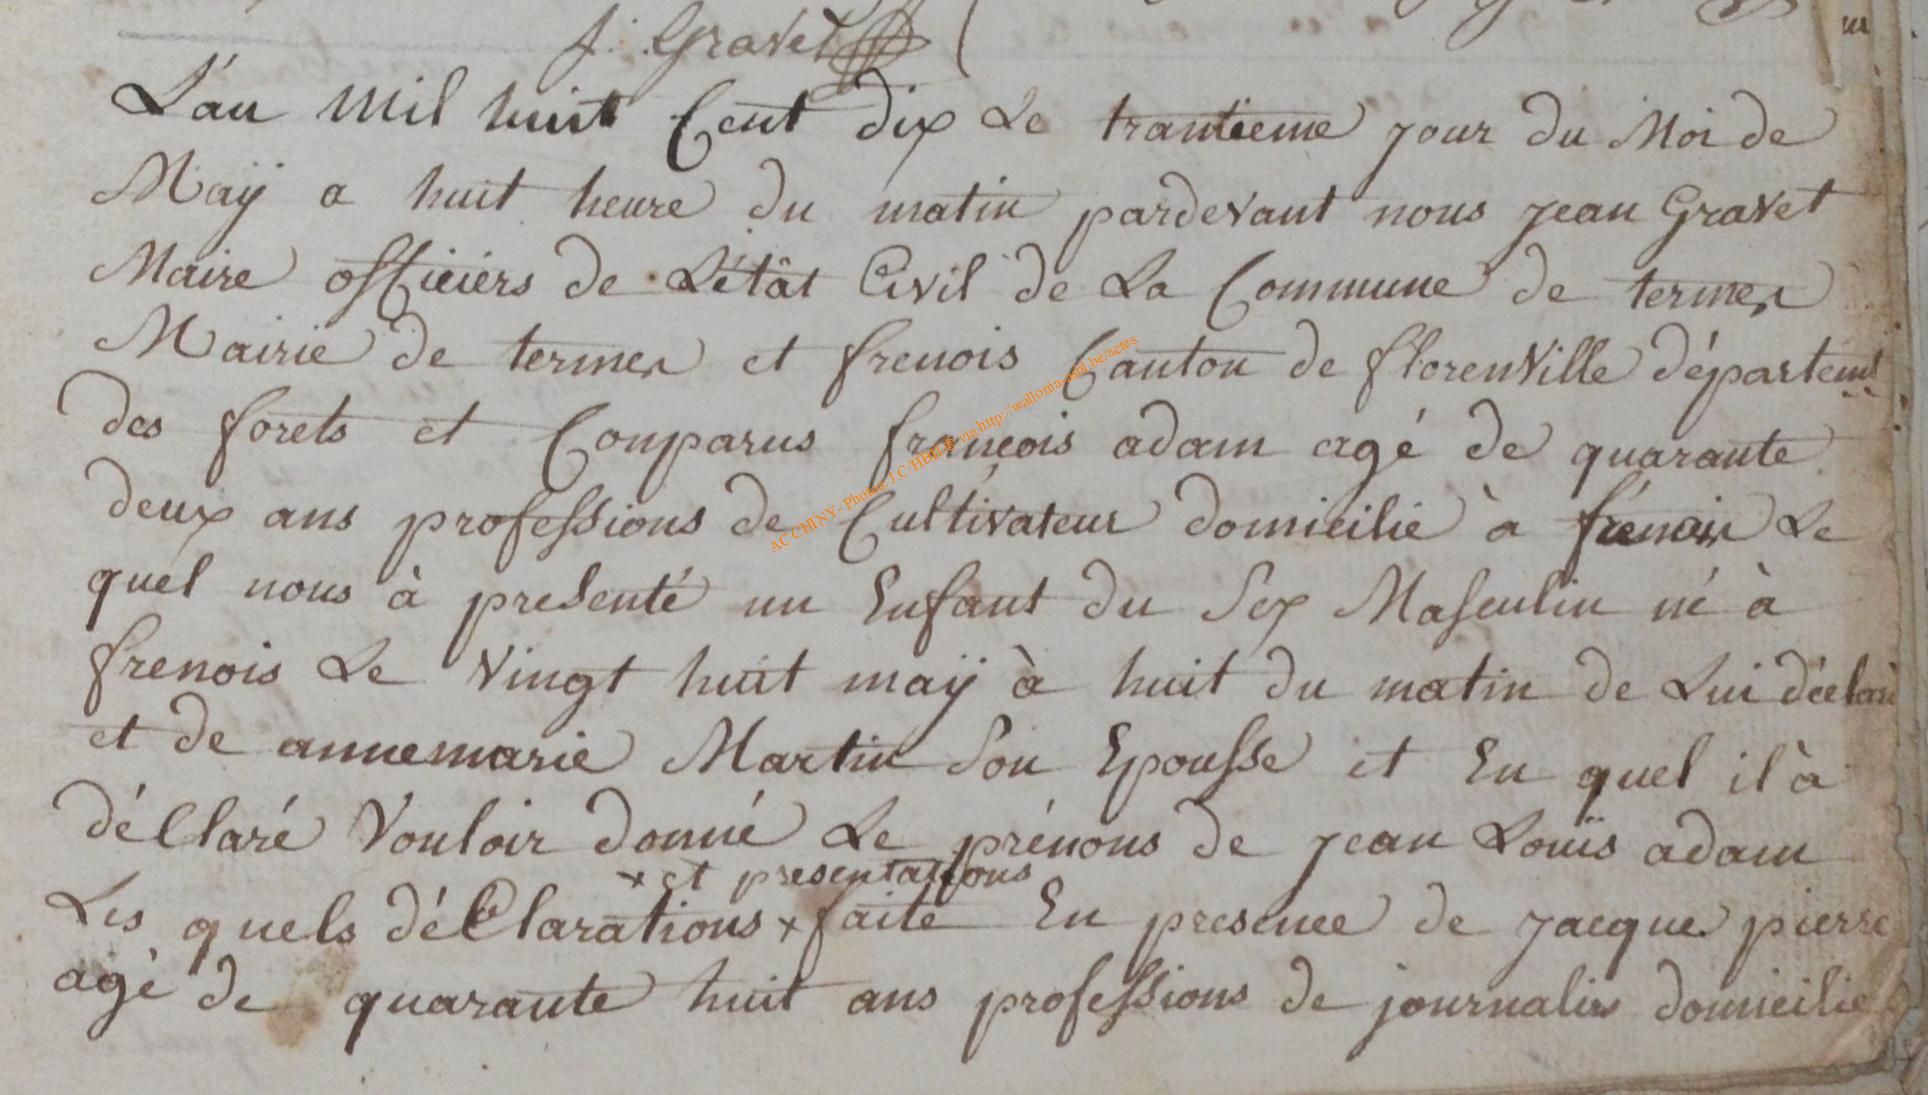 J. Gravet
L'an Mil huit Cent dix Le trantieme jour du Moi de
Maÿ a huit heure du matin pardevant nous jean Gravet
Maire officiers de L'étât Civil de La Commune de termes
Mairie de termes et frenois Canton de florenville départemt
des forets et Comparus françois adam agé de quarante
deux ans professions de Cultivateur domicilié à frenois Le
quel nous à presenté un Enfant du Sex Masculin né à
frenois Le vingt huit maÿ à huit du matin de Lui déclaré
et de annemarie Martin Son Epousse et En quel il à
déClaré Vouloir donné Le prénons de jean Louis adam
x et presentations
Les quels déClarations x faite En presence de jacque pierre
agé de quarante huit ans professions de journaliers domicilié
AC CHINY - Photos J.C/HBH @ via http://wallonia-asbl.be/actes